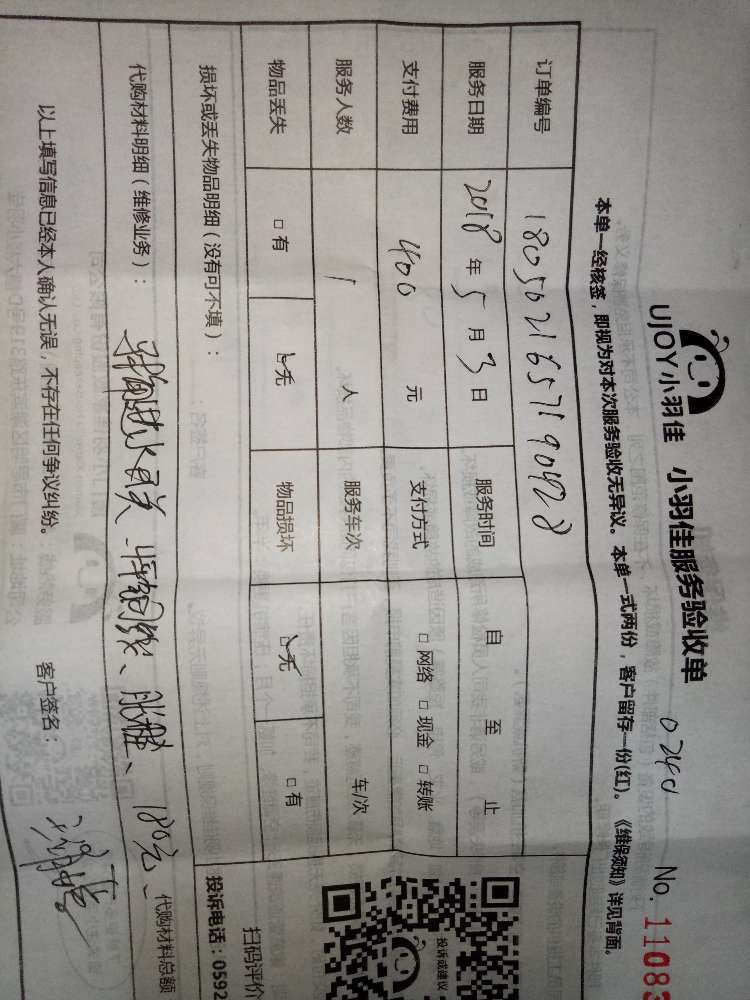 UJOY小羽佳 小羽佳服务验收单 0240 No. 11083
本单一经核签，即视为对本次服务验收无异议。本单一式两份，客户留存一份(红)。《维保须知》详见背面。
订单编号 1805021657190928
服务日期 2018年5月3日 服务时间 自 至 止
支付费用 400 元 支付方式 □网络 □现金 □转账
服务人数 1 人 服务车次 车/次
物品丢失 □有 □无 物品损坏 □无 □有
损坏或丢失物品明细（没有可不填）：
代购材料明细（维修业务）： 180元 代购材料总额
以上填写信息已经本人确认无误，不存在任何争议纠纷。 客户签名：
投诉或建议
扫码评价
投诉电话：0592